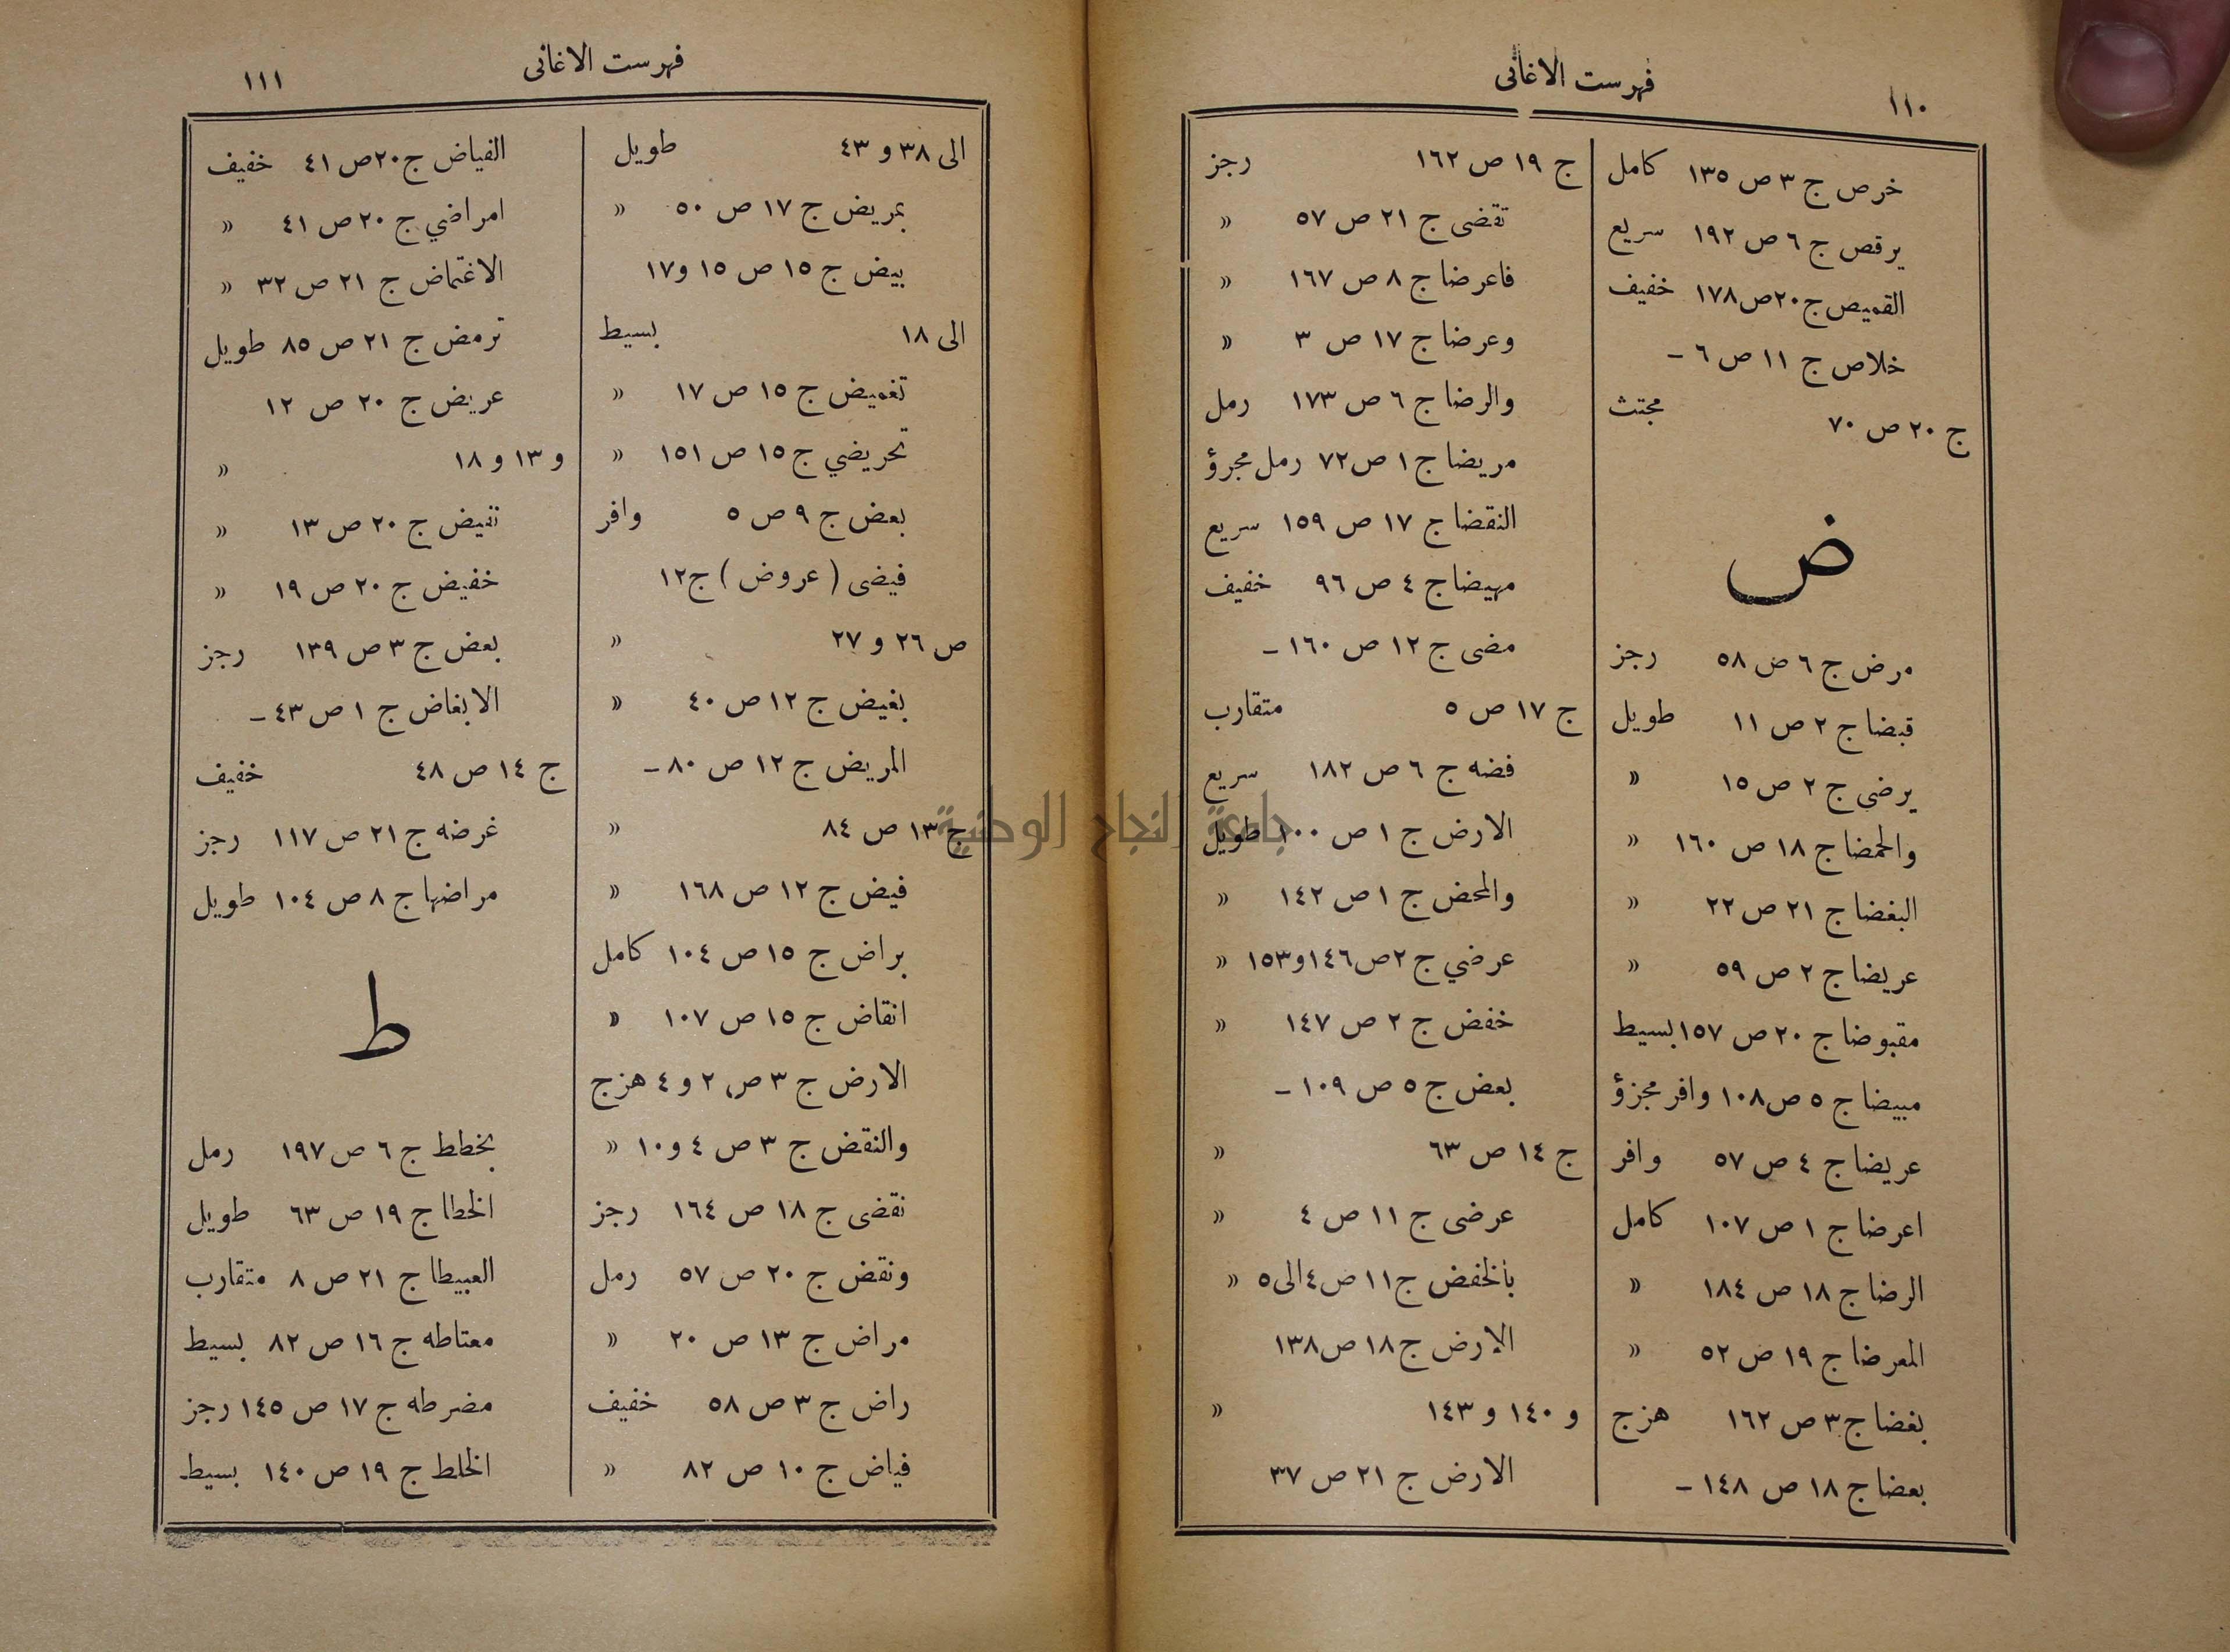 ١١٠
فهرست الاغانى
خرص ج ٣ ص ١٣٥ كامل
يرقص ج ٦ ص ١٩٢ سريع
القميص ج ٢٠ ص ١٧٨ خفيف
خلاص ج ١١ ص ٦ -
ج ٢٠ ص ٧٠ مجتث
ض
مرض ج ٦ ض ٥٨ رجز
قبضا ج ٢ ص ١١ طويل
يرضى ج ٢ ص ١٥ «
والحمضا ج ١٨ ص ١٦٠ «
البغضا ج ٢١ ص ٢٢ «
عريضا ج ٢ ص ٥٩ «
مقبوضا ج ٢٠ ص ١٥٧ بسيط
مبيضا ج ٥ ص ١٠٨ وافر مجزؤ
عريضا ج ٤ ص ٥٧ وافر
اعرضا ج ١ ص ١٠٧ كامل
الرضا ج ١٨ ص ١٨٤ «
المعرضا ج ١٩ ص ٥٢ «
بغضا ج ٣ ص ١٦٢ هزج
بعضا ج ١٨ ص ١٤٨ -
ج ١٩ ص ١٦٢ رجز
تقضى ج ٢١ ص ٥٧ «
فاعرضا ج ٨ ص ١٦٧ «
وعرضا ج ١٧ ص ٣ «
والرضا ج ٦ ص ١٧٣ رمل
مريضا ج ١ ص ٧٢ رمل مجرؤ
النقضا ج ١٧ ص ١٥٩ سريع
مهيضا ج ٤ ص ٩٦ خفيف
مضى ج ١٢ ص ١٦٠ -
ج ١٧ ص ٥ متقارب
فضه ج ٦ ص ١٨٢ سريع
الارض ج ١ ص ١٠٠ طويل
والمحض ج ١ ص ١٤٢ «
عرضي ج ٢ ص ١٤٦ و ١٥٣ «
خفض ج ٢ ص ١٤٧ «
بعض ج ٥ ص ١٠٩ -
ج ١٤ ص ٦٣ «
عرضى ج ١١ ص ٤ «
بالخفض ج ١١ ص ٤ الى ٥ «
الارض ج ١٨ ص ١٣٨
و ١٤٠ و ١٤٣ «
الارض ج ٢١ ص ٣٧
فهرست الاغانى
١١١
الى ٣٨ و ٤٣ طويل
بمريض ج ١٧ ص ٥٠ «
بيض ج ١٥ ص ١٥ و ١٧
الى ١٨ بسيط
تغميض ج ١٥ ص ١٧ «
تحريضي ج ١٥ ص ١٥١ «
بعض ج ٩ ص ٥ وافر
فيضى ( عروض ) ج ١٢
ص ٢٦ و ٢٧ «
بغيض ج ١٢ ص ٤٠ «
المريض ج ١٢ ص ٨٠ -
ج ١٣ ص ٨٤ «
فيض ج ١٢ ص ١٦٨ «
براض ج ١٥ ص ١٠٤ كامل
انقاض ج ١٥ ص ١٠٧ «
الارض ج ٣ ص ٢ و ٤ هزج
والنقض ج ٣ ص ٤ و ١٠ «
نقضى ج ١٨ ص ١٦٤ رجز
ونقض ج ٢٠ ص ٥٧ رمل
مراض ج ١٣ ص ٢٠ «
راض ج ٣ ص ٥٨ خفيف
فياض ج ١٠ ص ٨٢ «
الفياض ج ٢٠ ص ٤١ خفيف
امراضي ج ٢٠ ص ٤١ «
الاغتماض ج ٢١ ص ٣٢ «
ترمض ج ٢١ ص ٨٥ طويل
عريض ج ٢٠ ص ١٢
و ١٣ و ١٨ «
تفيض ج ٢٠ ص ١٣ «
خفيض ج ٢٠ ص ١٩ «
بعض ج ٣ ص ١٣٩ رجز
الابغاض ج ١ ص ٤٣ -
ج ١٤ ص ٤٨ خفيف
غرضه ج ٢١ ص ١١٧ رجز
مراضها ج ٨ ص ١٠٤ طويل
ط
بخطط ج ٦ ص ١٩٧ رمل
الخطا ج ١٩ ص ٦٣ طويل
العبيطا ج ٢١ ص ٨ متقارب
معتاطه ج ١٦ ص ٨٢ بسيط
مضرطه ج ١٧ ص ١٤٥ رجز
الخلط ج ١٩ ص ١٤٠ بسيط
جامعة النجاح الوطنية